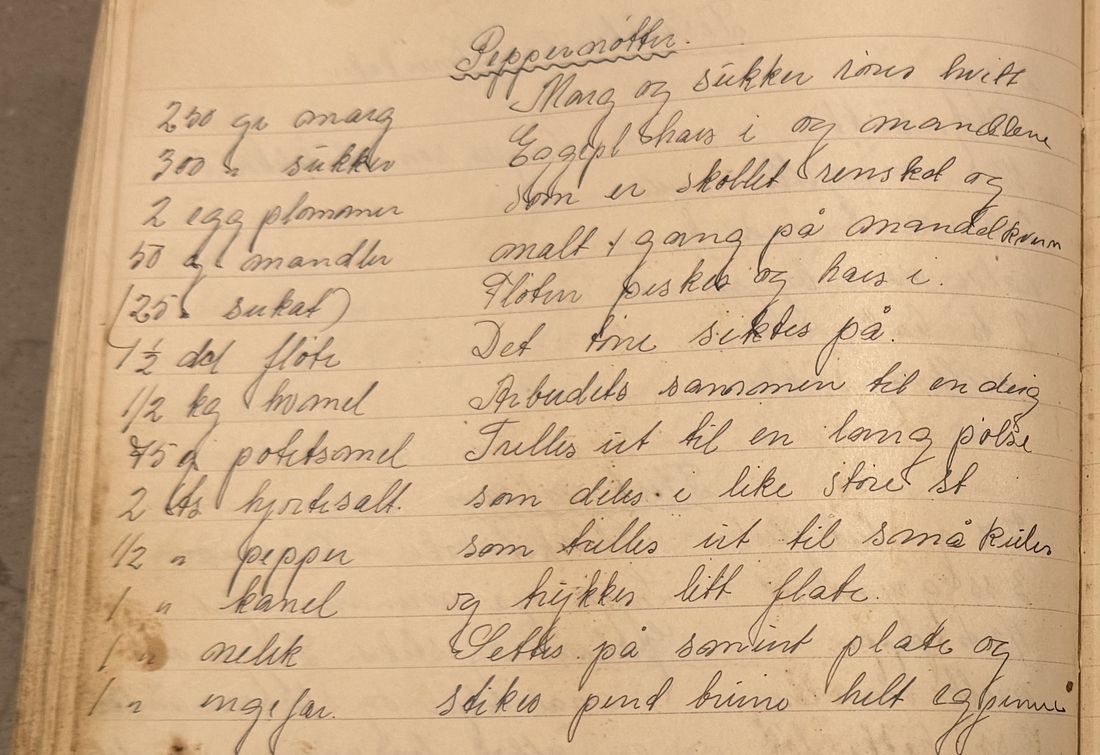 Peppernøtter.
250 gr marg
300 " sukker
2 eggplommer
50 g. mandler
(25 " sukat)
1 1/2 dl fløte
1/2 kg hvmel
75 g potetsmel
2 ts hjortesalt.
1/2 " pepper
1 " kanel
1 " nelik
1 " ingefær.
Marg og sukker røres hvitt
Eggepl haes i og mandlene
som er skollet renskd og
malt 1 gang på mandelkvern
Fløten piskes og haes i.
Det tørre siktes på.
Arbeidets sammen til en deig
Trilles ut til en lang pølse
som deles i like store st
som trilles ut til små kuler
og trykkes litt flate.
Settes på smurt plate og
stekes pend brune helt igjennem